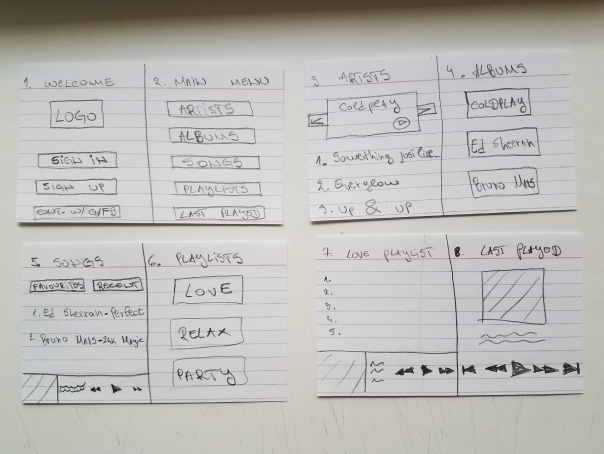 1. WELCOME
LOGO
SIGN IN
SIGN UP
CONT. W/ G/FB
2. MAIN MENU
ARTISTS
ALBUMS
SONGS
PLAYLISTS
LAST PLAYED
3 ARTISTS
Coldplay
1. Something just like..
2. Everglow
3. Up & up
4. ALBUMS
COLDPLAY
Ed Sheeran
Bruno Mars
5. SONGS
FAVOURITES RECENT
1. Ed Sheeran-Perfect
2 Bruno MARS-24K Magic
6. PLAYLISTS
LOVE
RELAX
PARTY
7. LOVE PLAYLIST
1.
2.
3.
4.
5.
8. LAST PLAYED